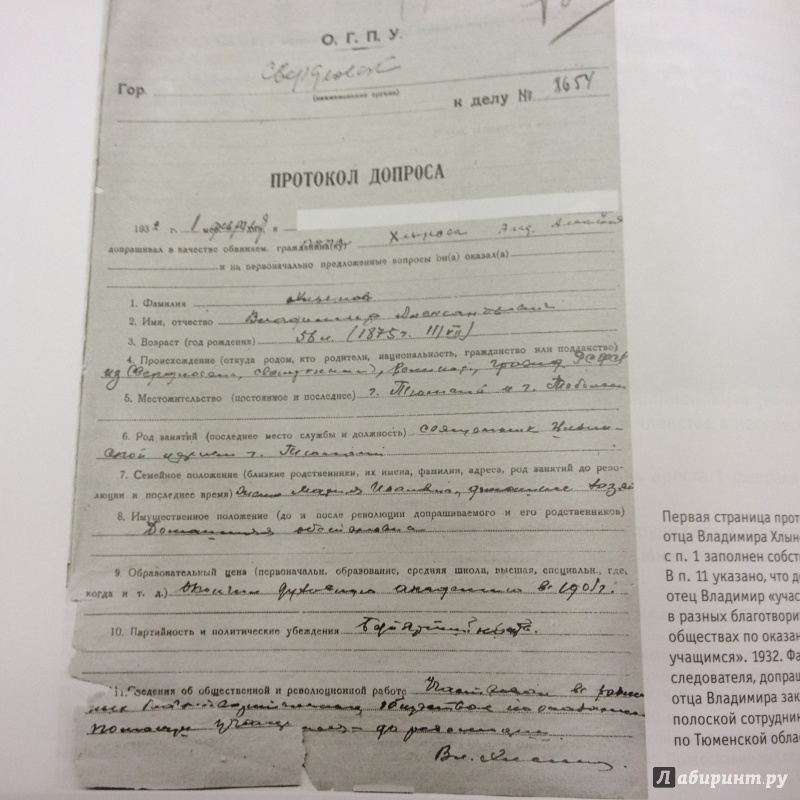 О. Г. П. У.
Гор. Свердловск
(наименование органа)
к делу № 8654
ПРОТОКОЛ ДОПРОСА
193 г. 1 я
допрашивал в качестве обвиняем. гражданина(ку) Хлынова Влад.
и на первоначально предложенные вопросы он(а) показал(а)
1. Фамилия Хлынов
2. Имя, отчество Владимир Александрович
3. Возраст (год рождения) 56 л. (1875 г. VII)
4. Происхождение (откуда родом, кто родители, национальность, гражданство или подданство)
из РСФСР
5. Местожительство (постоянное и последнее) г. Тюмень и г. Тобольск
6. Род занятий (последнее место службы и должность) священник Ильин-
ской церкви г. Тюмени
7. Семейное положение (близкие родственники, их имена, фамилии, адреса, род занятий до рево-
люции и последнее время) Мария Ивановна, домашнее хозяй
8. Имущественное положение (до и после революции допрашиваемого и его родственников)
Домашняя обстановка
9. Образовательный ценз (первоначальн. образование, средняя школа, высшая, специальн., где,
когда и т. д.) Окончил духовную академию в 1901 г.
10. Партийность и политические убеждения Беспартийный
11. Сведения об общественной и революционной работе Участвовал в разни-
ных обществах по оказанию
помощи учащимся до революции.
Вл. Хлынов
Первая страница прот
отца Владимира Хлын
с п. 1 заполнен собст
В п. 11 указано, что д
отец Владимир «учас
в разных благотвори
обществах по оказан
учащимся». 1932. Фа
следователя, допраш
отца Владимира зак
полоской сотрудник
по Тюменской облас
Лабиринт.ру